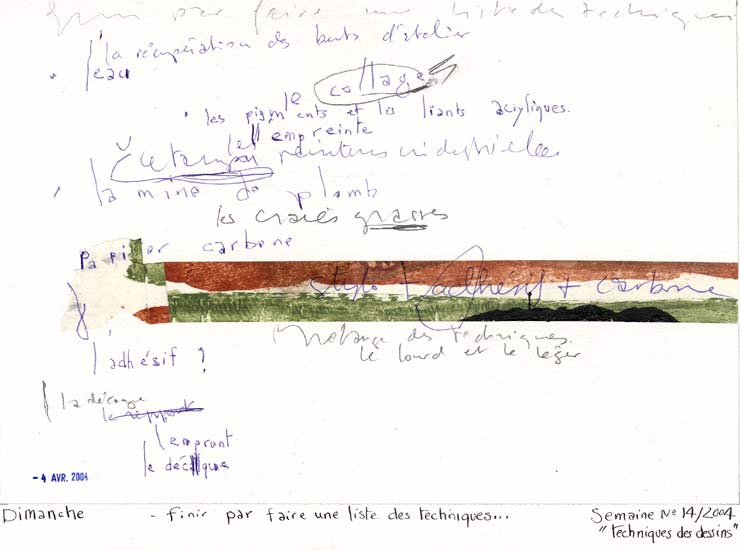 finir par faire une liste des techniques
la récupération des bouts d'atelier
l'eau
le collage
les pigments et les liants acryliques.
l'empreinte
peintures industrielles
la mine de plomb
les craies grasses
Papier carbone
stylo + adhésif + carbone
Mélange des techniques.
le lourd et le léger
l'adhésif ?
la découpe
le report
l'emprunt
le décalque
- 4 AVR. 2004
Dimanche - finir par faire une liste des techniques...
Semaine No 14/2004
"techniques des dessins"